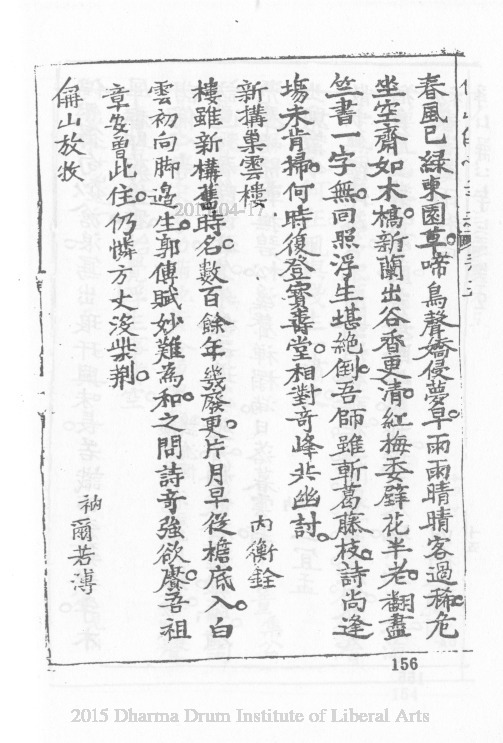 春風已綠東園草啼鳥聲嬌侵夢早雨雨晴晴客過稀危
坐空齋如木槁新蘭出谷香更清紅梅委砌花半老翻盡
竺書一字無回照浮生堪絕倒吾師雖斬葛藤枝詩尚逢
場未肯掃何時復登寶壽堂相對奇峰共幽討
內衡銓
新搆巢雲樓
樓雖新搆舊時名數百餘年幾廢更片月早從檐底入白
雲初向脚邊生郭傳賦妙難為和之問詩奇強欲賡吾祖
章安曾此住仍憐方丈沒柴荆
衲爾若溥
屏山放牧
156
2015-04-17
2015 Dharma Drum Institute of Liberal Arts